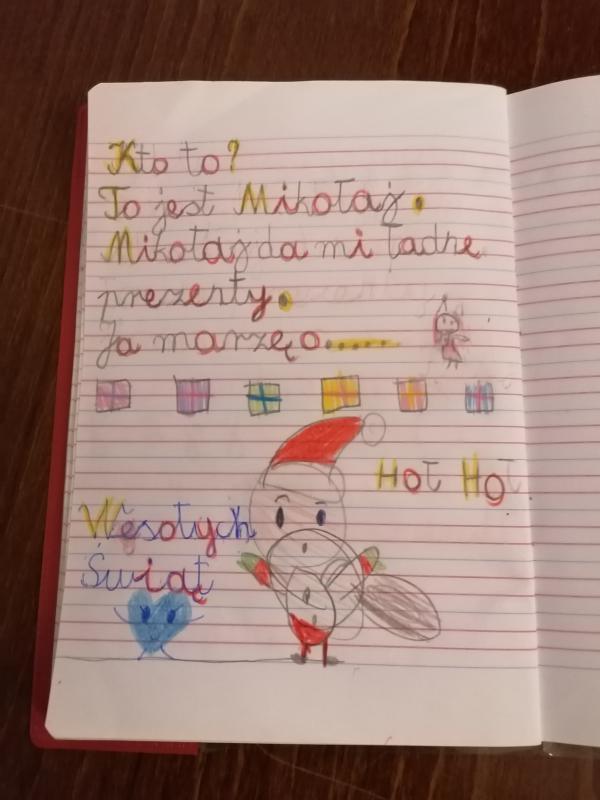 Kto to?
To jest Mikołaj.
Mikołaj da mi ładne
prezenty.
Ja marzę o.......
Hoł Hoł
Wesołych
Świąt